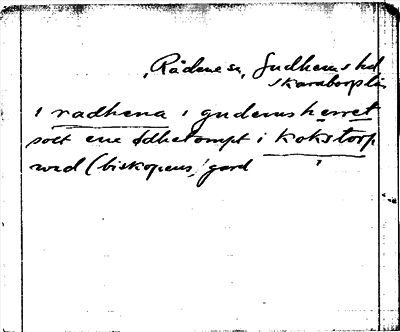 , Rådene sn, Gudhems hd
Skaraborgs län
i radhena i gudems herret
soet ene ødhetompt i kokstorp
wed (biskopens) gard